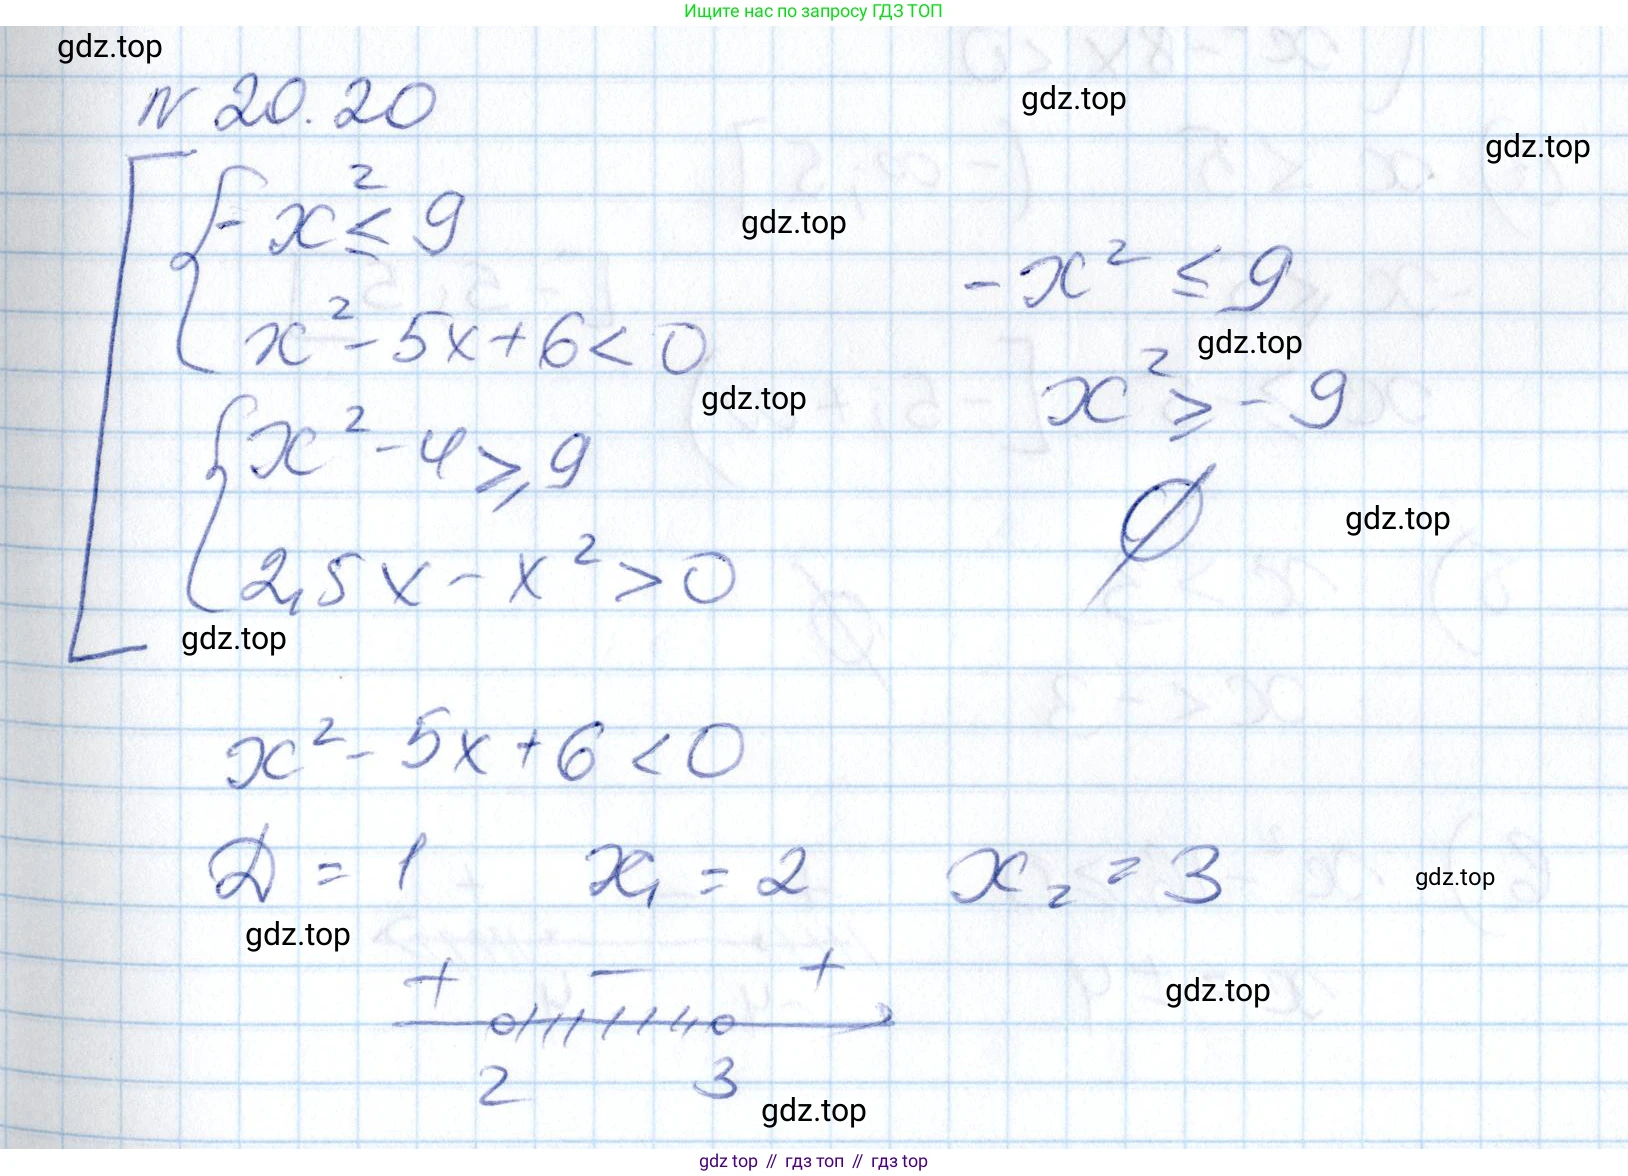 Ищите нас по запросу ГДЗ ТОП
gdz.top
N 20.20
gdz.top
gdz.top
-x² ≤ 9
gdz.top
-x² ≤ 9
x² - 5x + 6 < 0
gdz.top
x² ≥ -9
gdz.top
x² - 4 ≥ 9
∅
gdz.top
2,5x - x² > 0
gdz.top
x² - 5x + 6 < 0
D = 1 x₁ = 2 x₂ = 3
gdz.top
gdz.top
+ - +
gdz.top
2 3
gdz.top
gdz top // гдз топ // gdz top